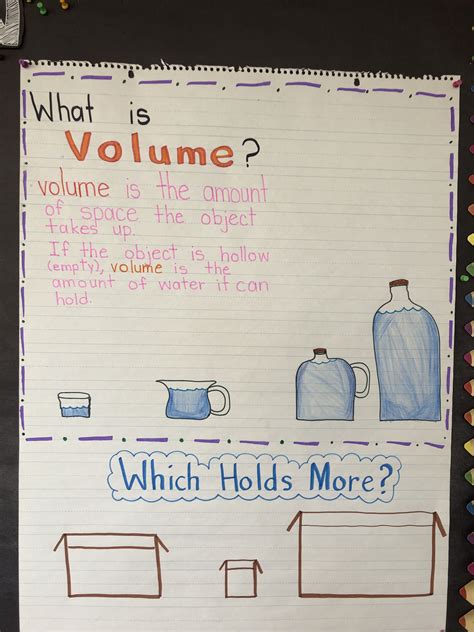 What is
Volume?
volume is the amount
of space the object
takes up.
If the object is hollow
(empty), volume is the
amount of water it can
hold.
Which Holds More?